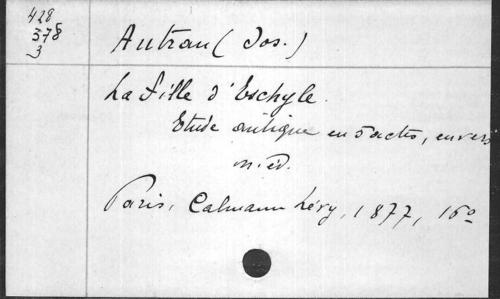 428
378
3
Autran (Jos.)
La fille d'Eschyle.
Etude antique en 5 actes, en vers
n. éd.
Paris, Calmann Lévy, 1877, 16o